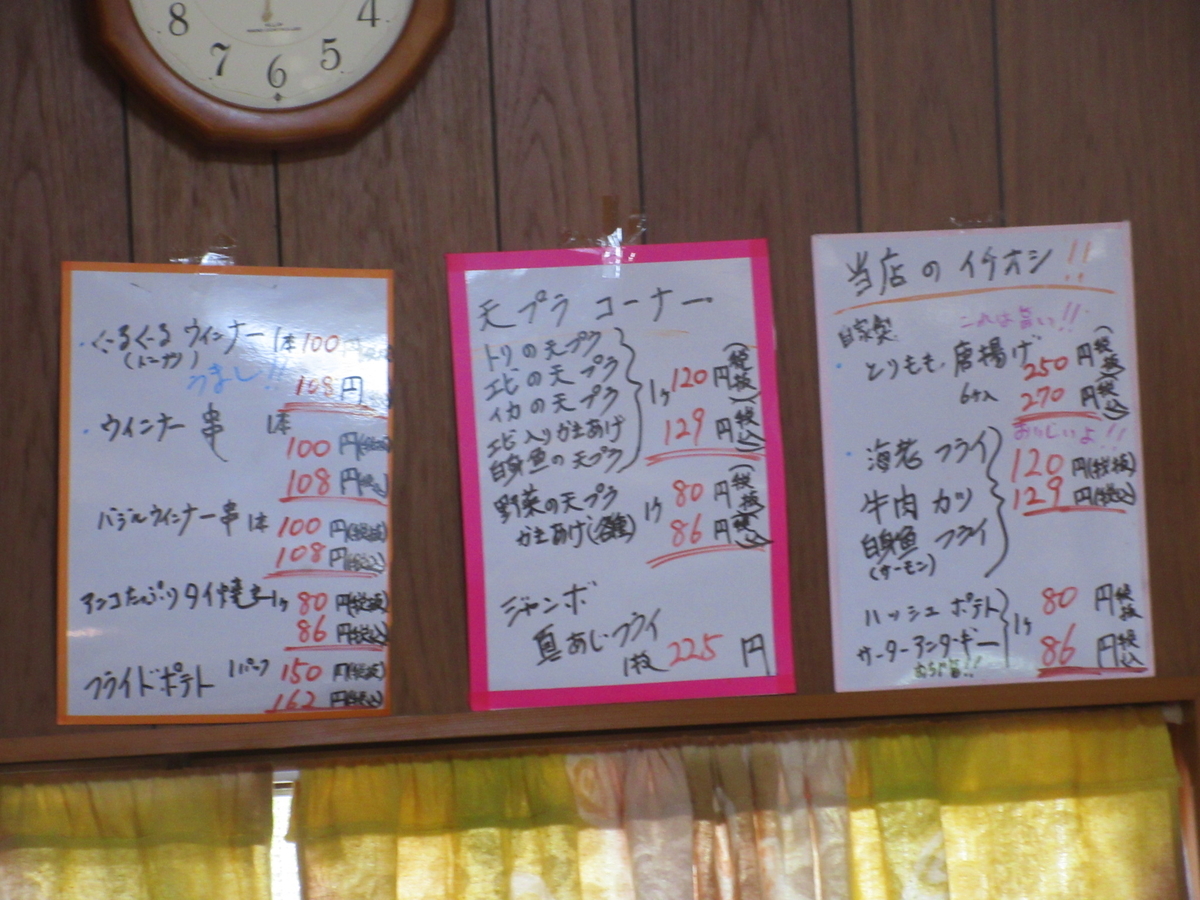 8
7
6
5
4
くーるくーるウインナー 1本 100
うまし!! 108円
ウィンナー串 1本
100円(税抜)
108円(税込)
バジルウィンナー串 1本 100円(税抜)
108円(税込)
アンコたっぷりタイ焼き 1ヶ 80円(税抜)
86円(税込)
フライドポテト 1パック 150円(税抜)
162円(税込)
天プラコーナー
トリの天プラ
エビの天プラ
イカの天プラ
エビ入りかきあげ
白身魚の天プラ
1ヶ 120円(税抜)
129円(税込)
野菜の天プラ
かきあげ(各種)
1ヶ 80円(税抜)
86円(税込)
ジャンボ
真あじフライ
1枚 225円
当店のイチオシ!!
自家製 これは旨い!!
とりもも唐揚げ 250円(税抜)
6ヶ入 270円(税込)
おいしいよ!!
海老フライ 120円(税抜)
129円(税込)
牛肉カツ
白身魚フライ
(サーモン)
ハッシュポテト
サーターアンダーギー
1ヶ 80円税抜
86円税込